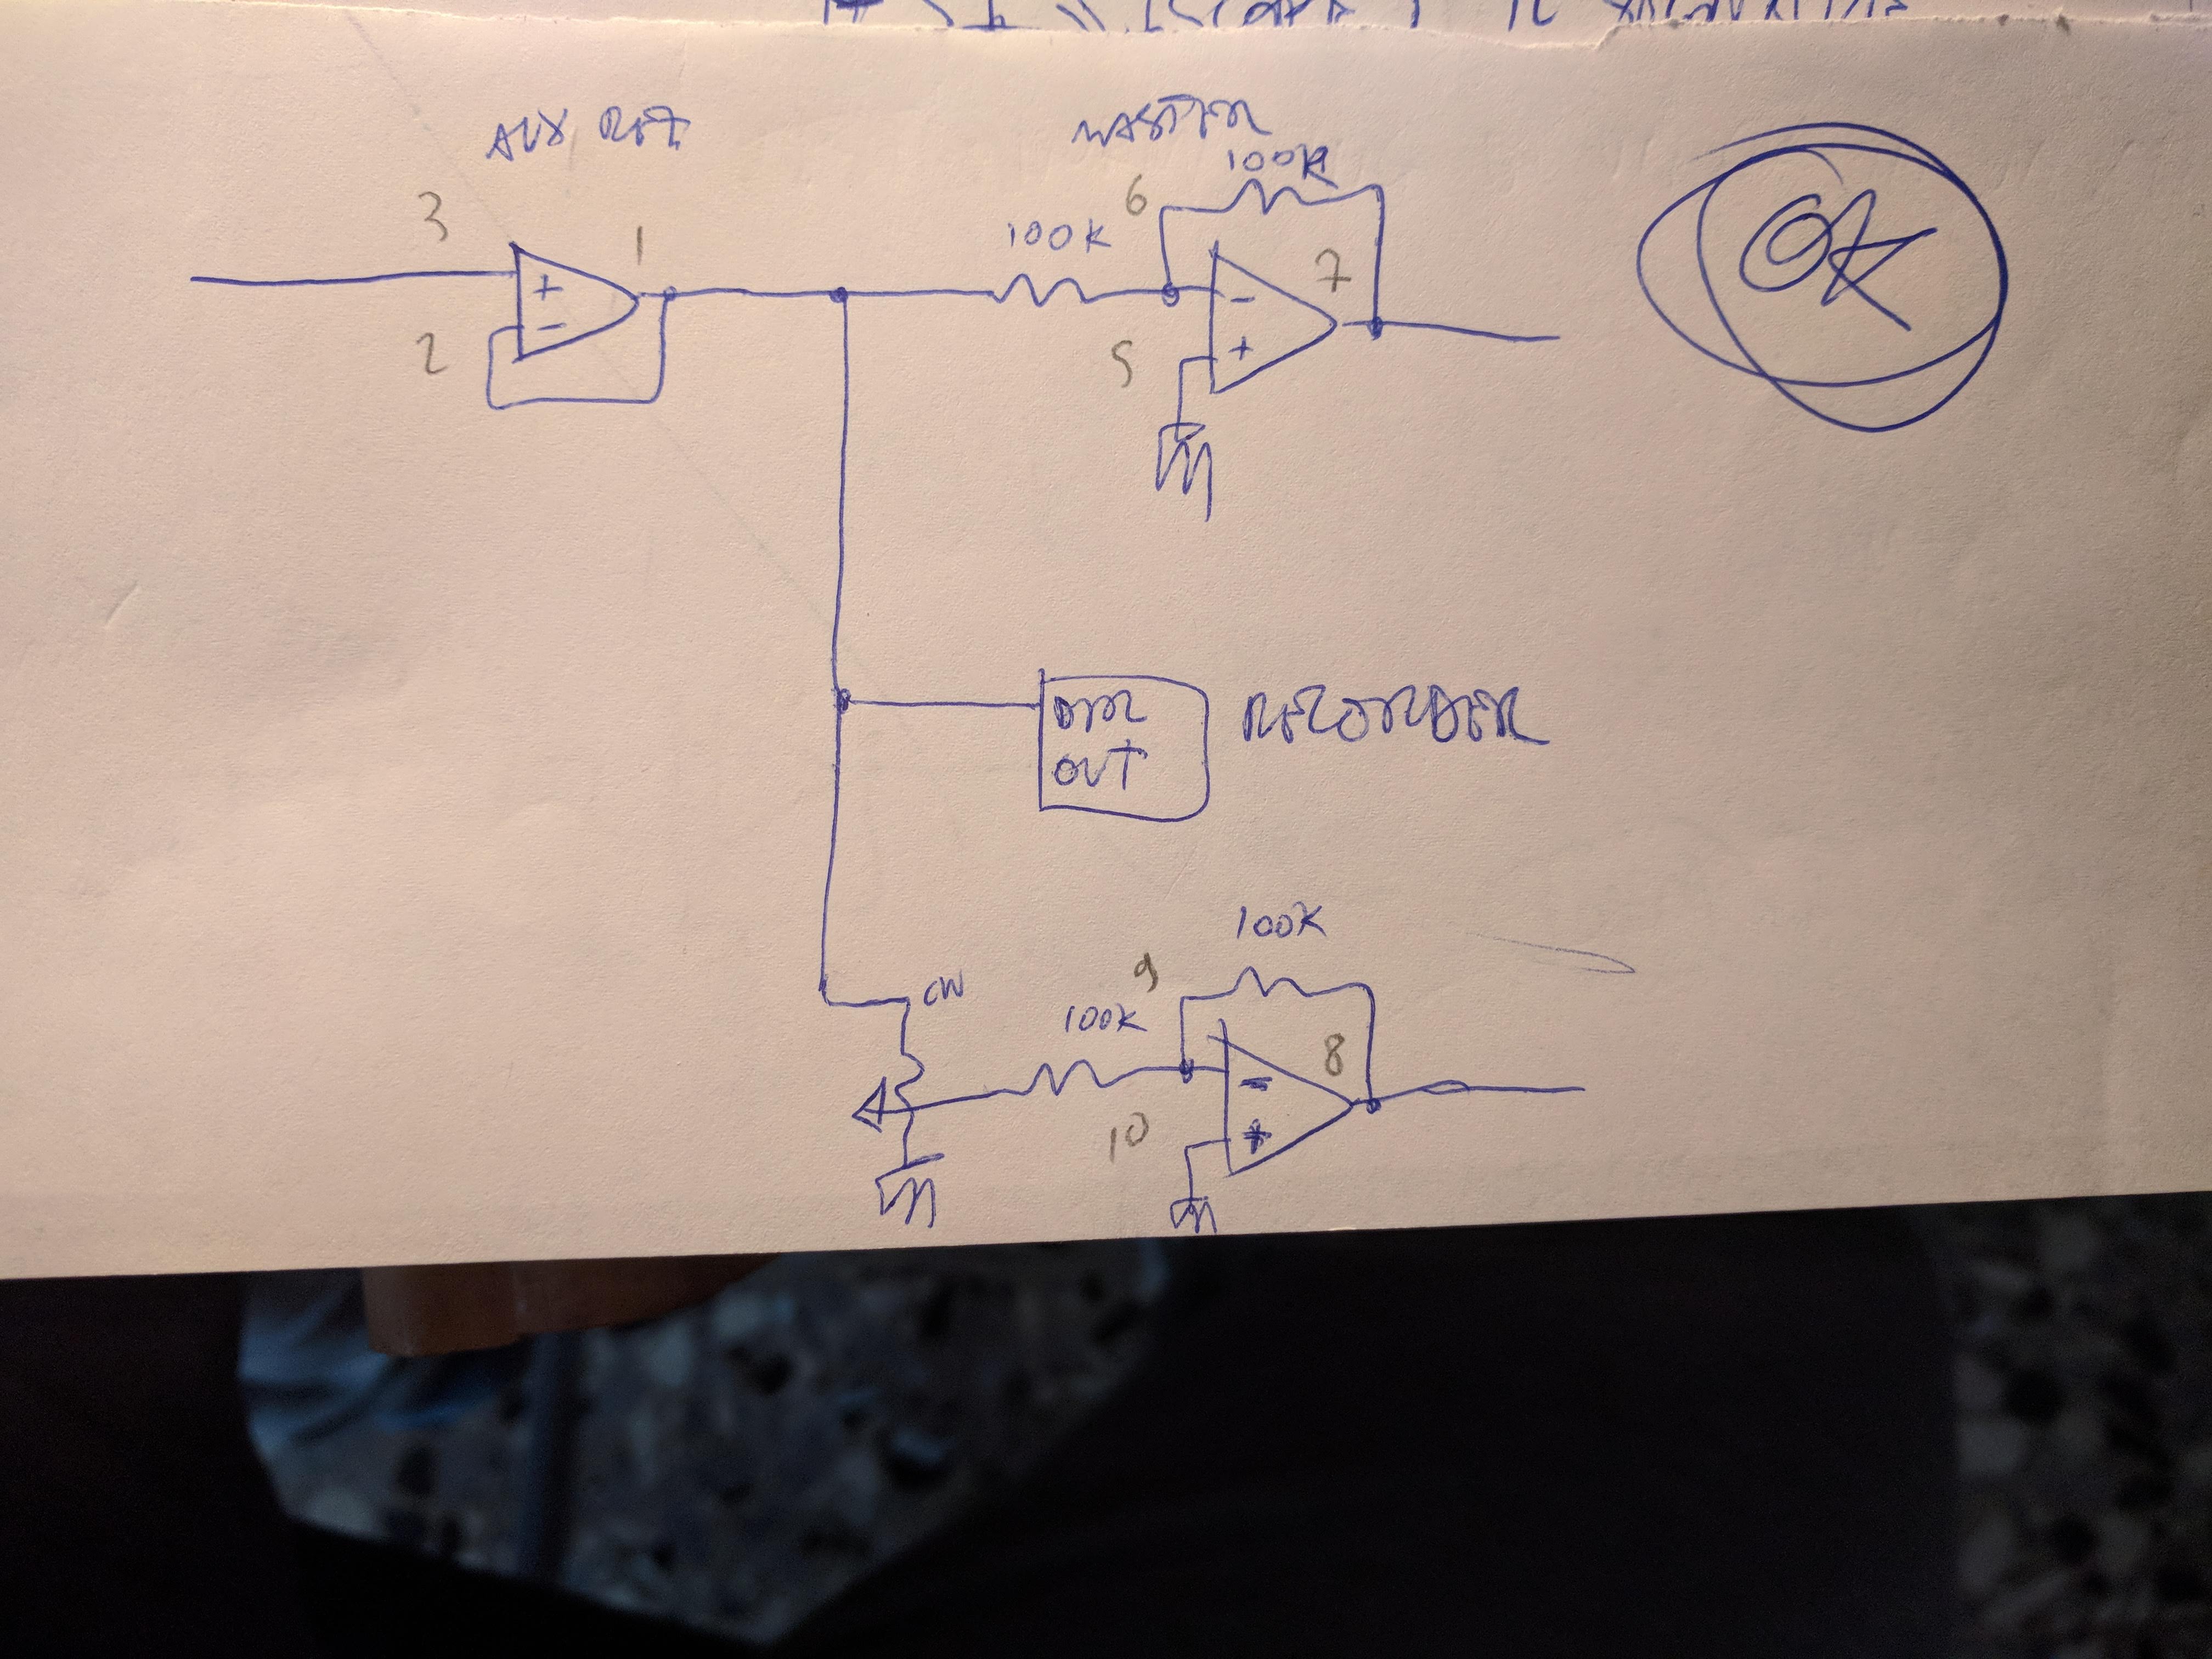 AUX RET
MASTER
100K
3
1
6
100K
7
+
-
2
-
+
5
OK
DIR
OUT
RECORDER
100K
CW
9
100K
8
-
+
10